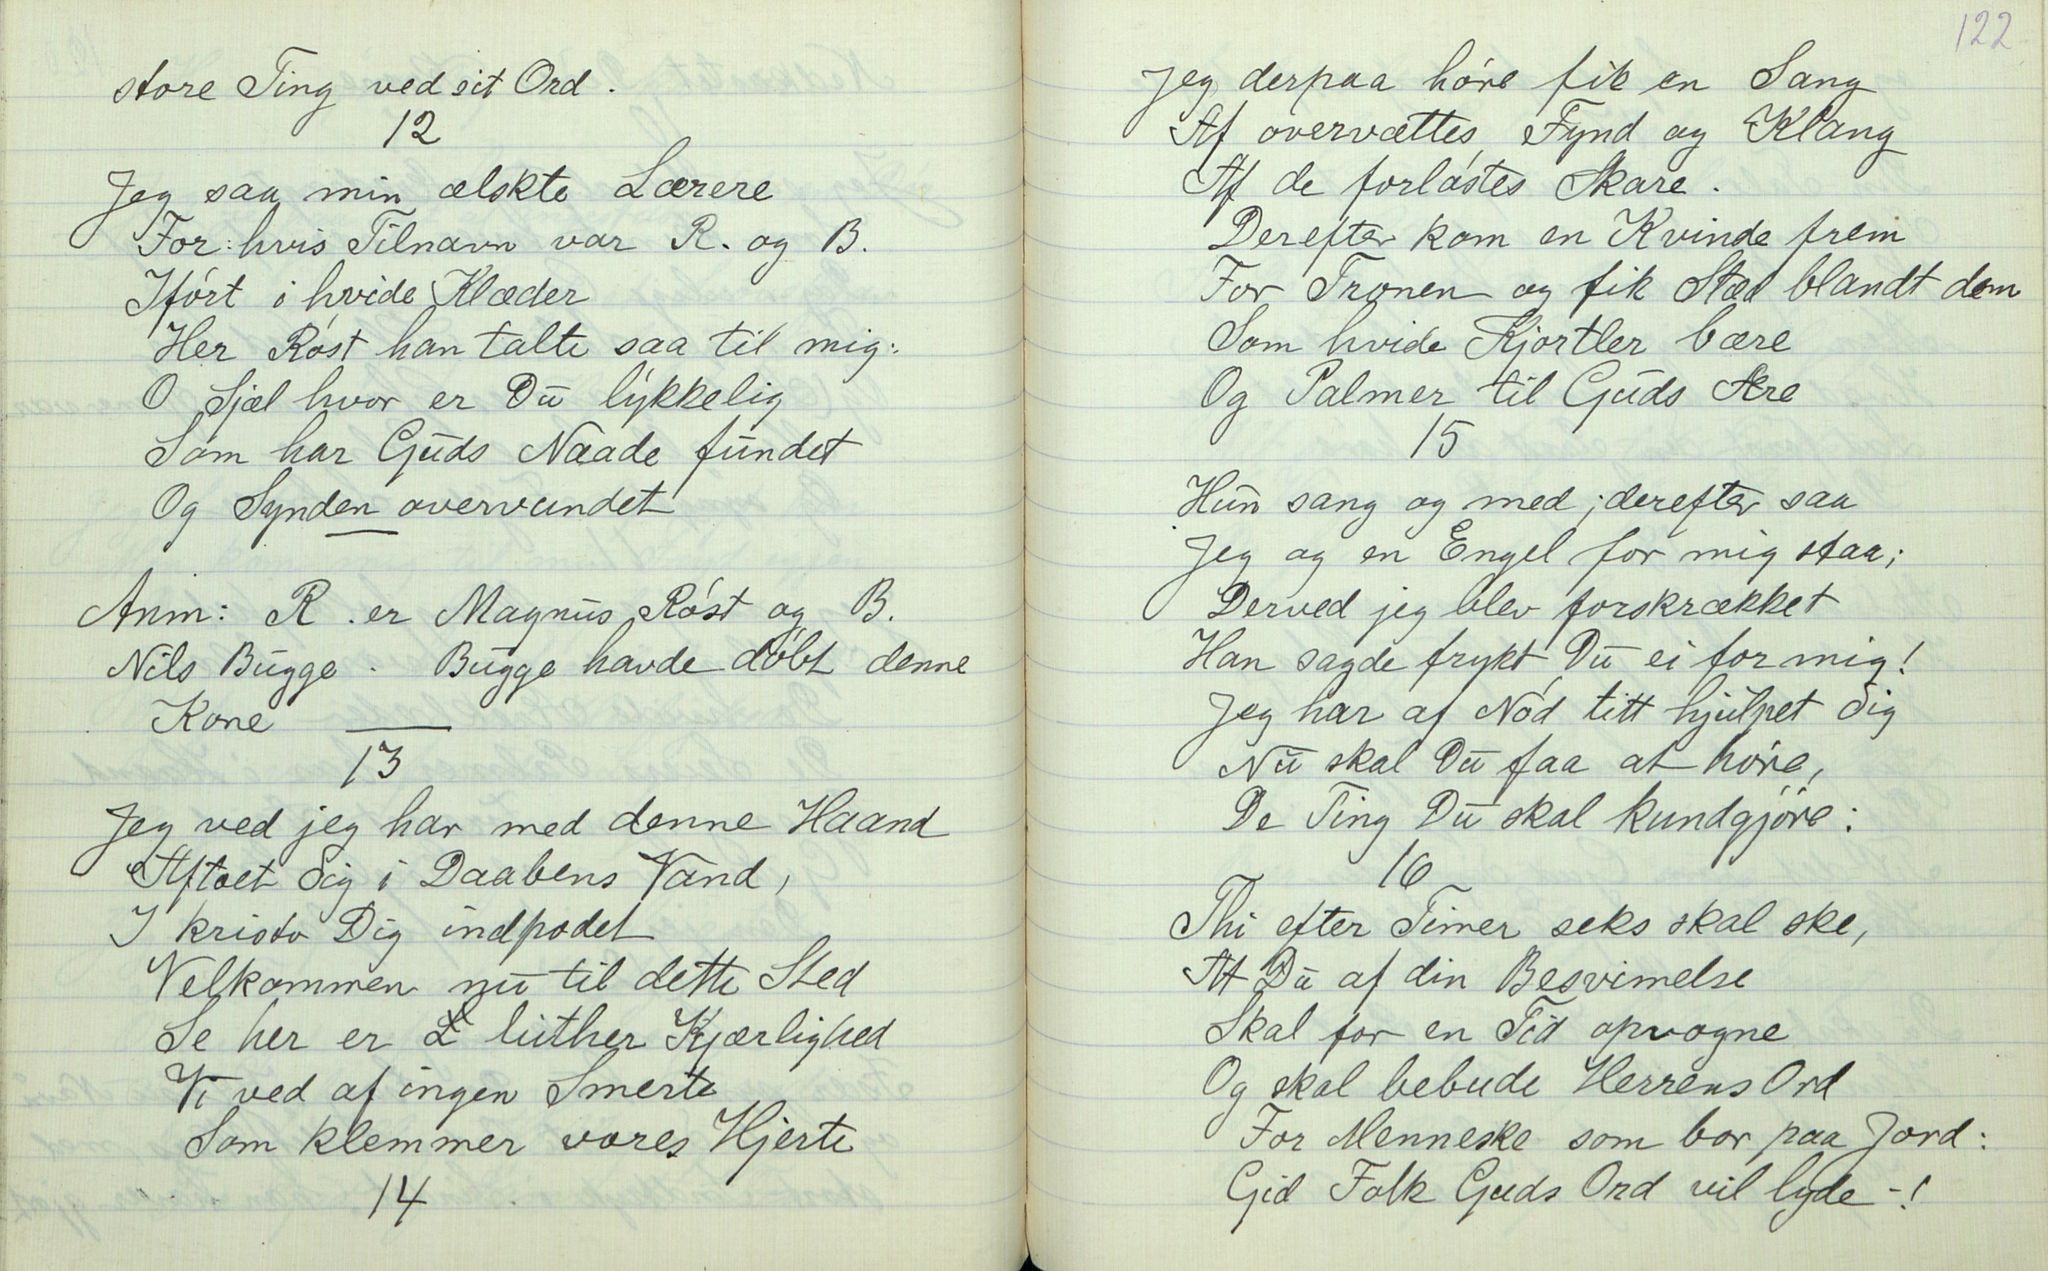 store Ting ved sit Ord.
12
Jeg saa min ælskte Lærere
For: hvis Tilnavn var R. og B.
Iført i hvide Klæder
Her Røst han talte saa til mig:
O Sjæl hvor er Du lykkelig
Som har Guds Naade fundet
Og Synden overvundet
Anm: R. er Magnus Røst og B.
Nils Bugge. Bugge havde døbt denne
Kone
13
Jeg ved jeg har med denne Haand
Aftoet dig i Daabens Vand,
I kristo Dig indpodet
Velkommen nu til dette Sted
Se her er luther Kjærlighed
Vi ved af ingen Smerte
Som klemmer vores Hjerte
14
122
Jeg derpaa høre fik en Sang
Af overvættes Fynd og Klang
Af de forløstes Skare.
Derefter kom en Kvinde frem
For Tronen og fik Stæd blandt dem
Som hvide Kjortler bære
Og Palmer til Guds Ære
15
Hun sang og med; derefter saa
Jeg og en Engel for mig staa;
Derved jeg blev forskrækket
Han sagde frykt Du ei for mig!
Jeg har af Nød titt hjulpet dig
Nu skal Du faa at høre,
De Ting Du skal kundgjøre:
16
Thi efter Timer seks skal ske,
At Du af din Besvimelse
Skal for en Tid opvogne
Og skal bebude Herrens Ord
For Menneske som bor paa Jord:
Gid Folk Guds Ord vil lyde -!